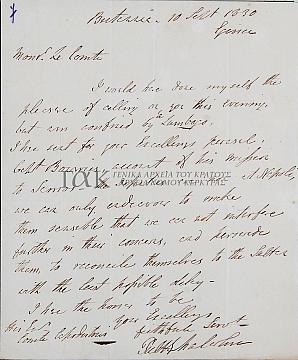 10 Sept 1830
Monsr. Le Comte
I would have done myself the
pleasure of calling on you this evening
but am confined by Lumbago.
I have sent for your Excellency's perusal
Capt account of his mission
to
ΓΕΝΙΚΑ ΑΡΧΕΙΑ ΤΟΥ ΚΡΑΤΟΥΣ
ΑΡΧΕΙΑ ΝΟΜΟΥ ΚΕΡΚΥΡΑΣ
we can only endeavour to make
them sensible that we can not interfere
further in their concerns, and persuade
them, to reconcile themselves to the Sultan
with the least possible delay—
I have the honor to be
Your Excellency's
His Ex
Comte Capodistrias
Servt